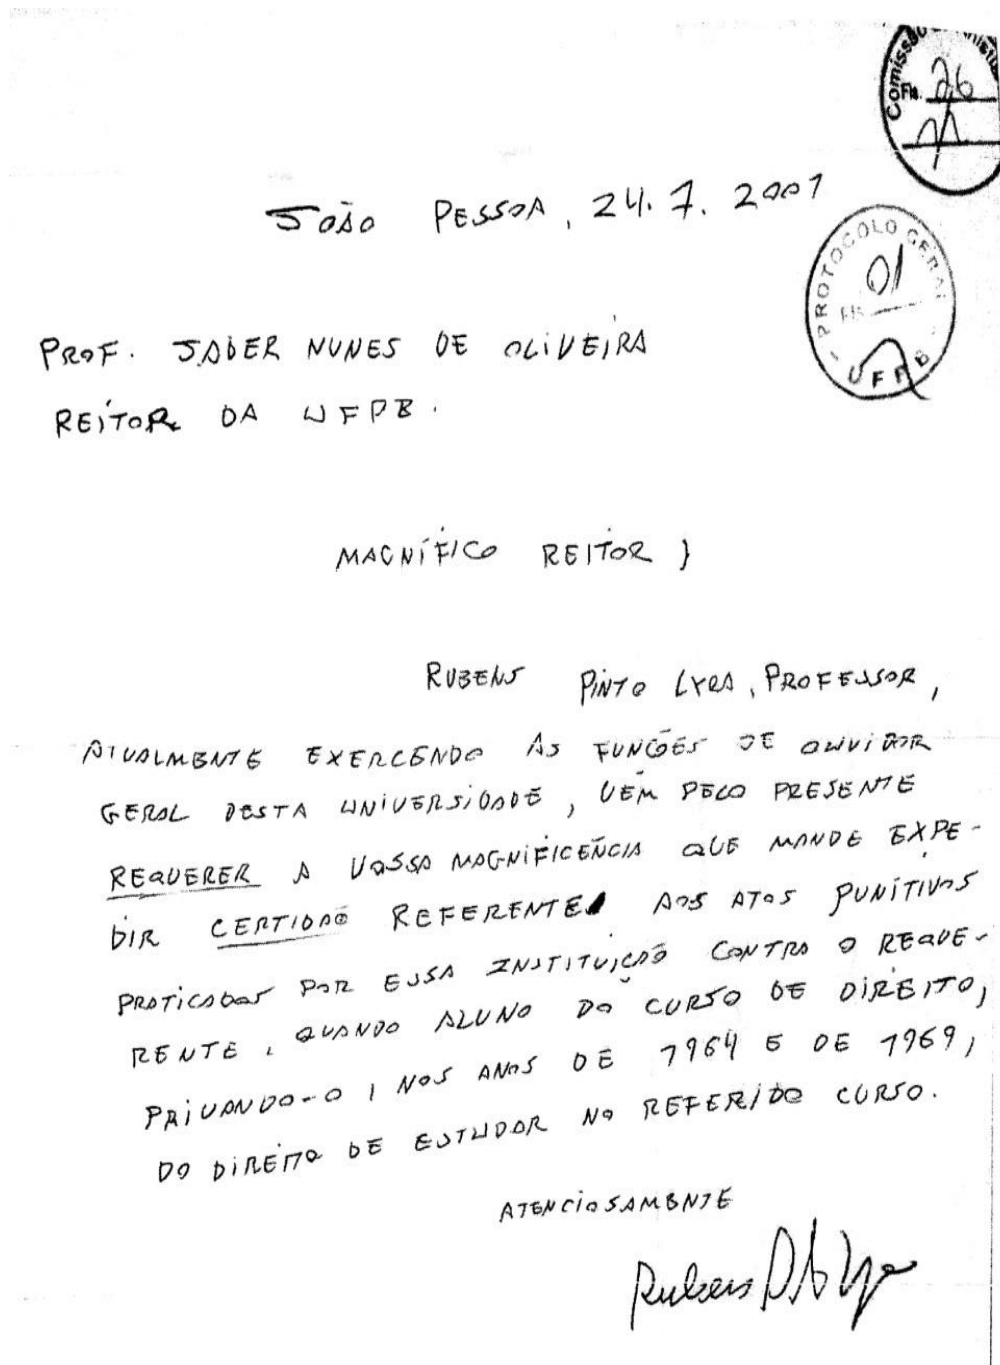 Comissão
Fls. 26
JOÃO PESSOA, 24.7.2001
PROTOCOLO GERAL
Fls. 01
UFPB
PROF. JADER NUNES DE OLIVEIRA
REITOR DA UFPB.
MAGNÍFICO REITOR,
RUBENS PINTO LYRA, PROFESSOR,
ATUALMENTE EXERCENDO AS FUNÇÕES DE OUVIDOR
GERAL DESTA UNIVERSIDADE, VEM PELO PRESENTE
REQUERER A VOSSA MAGNIFICÊNCIA QUE MANDE EXPE-
DIR CERTIDÃO REFERENTE AOS ATOS PUNITIVOS
PRATICADOS POR ESSA INSTITUIÇÃO CONTRA O REQUE-
RENTE, QUANDO ALUNO DO CURSO DE DIREITO,
PRIVANDO-O, NOS ANOS DE 1964 E DE 1969,
DO DIREITO DE ESTUDAR NO REFERIDO CURSO.
ATENCIOSAMENTE
Rubens